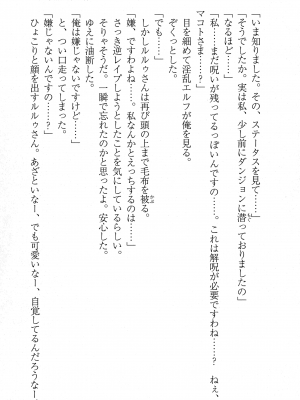 「いま知りました。その、ステータスを見て……」
「そうでしたか。実は私、少し前にダンジョンに潜っておりましたの」
「なるほど……」
「私……まだ呪いが残ってるっぽいんですの……。これは解呪が必要ですわね……？　ねぇ、
マコトさま……？」
目を細めて淫乱エルフが俺を見る。
ぞくっとした。
「でも……」
しかしルルゥさんは再び頭の上まで毛布を被る。
「嫌、ですわよね……。私なんかとえっちするのは……」
さっき逆レイプしようとしたことを気にしているらしい。
そりゃそうだ。一瞬で忘れたのかと思ったよ。安心した。
ゆえに油断した。
「俺は嫌じゃないですけど……」
と、つい口走ってしまった。
「嫌じゃないんですの……？」
ひょこりと顔を出すルルゥさん。あざといなー、でも可愛いなー、自覚してるんだろうなー。